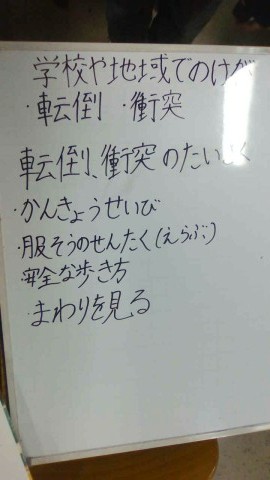 学校や地域でのけが
・転倒 ・衝突
転倒、衝突のたいさく
・かんきょうせいび
・服そうのせんたく(えらぶ)
・安全な歩き方
・まわりを見る